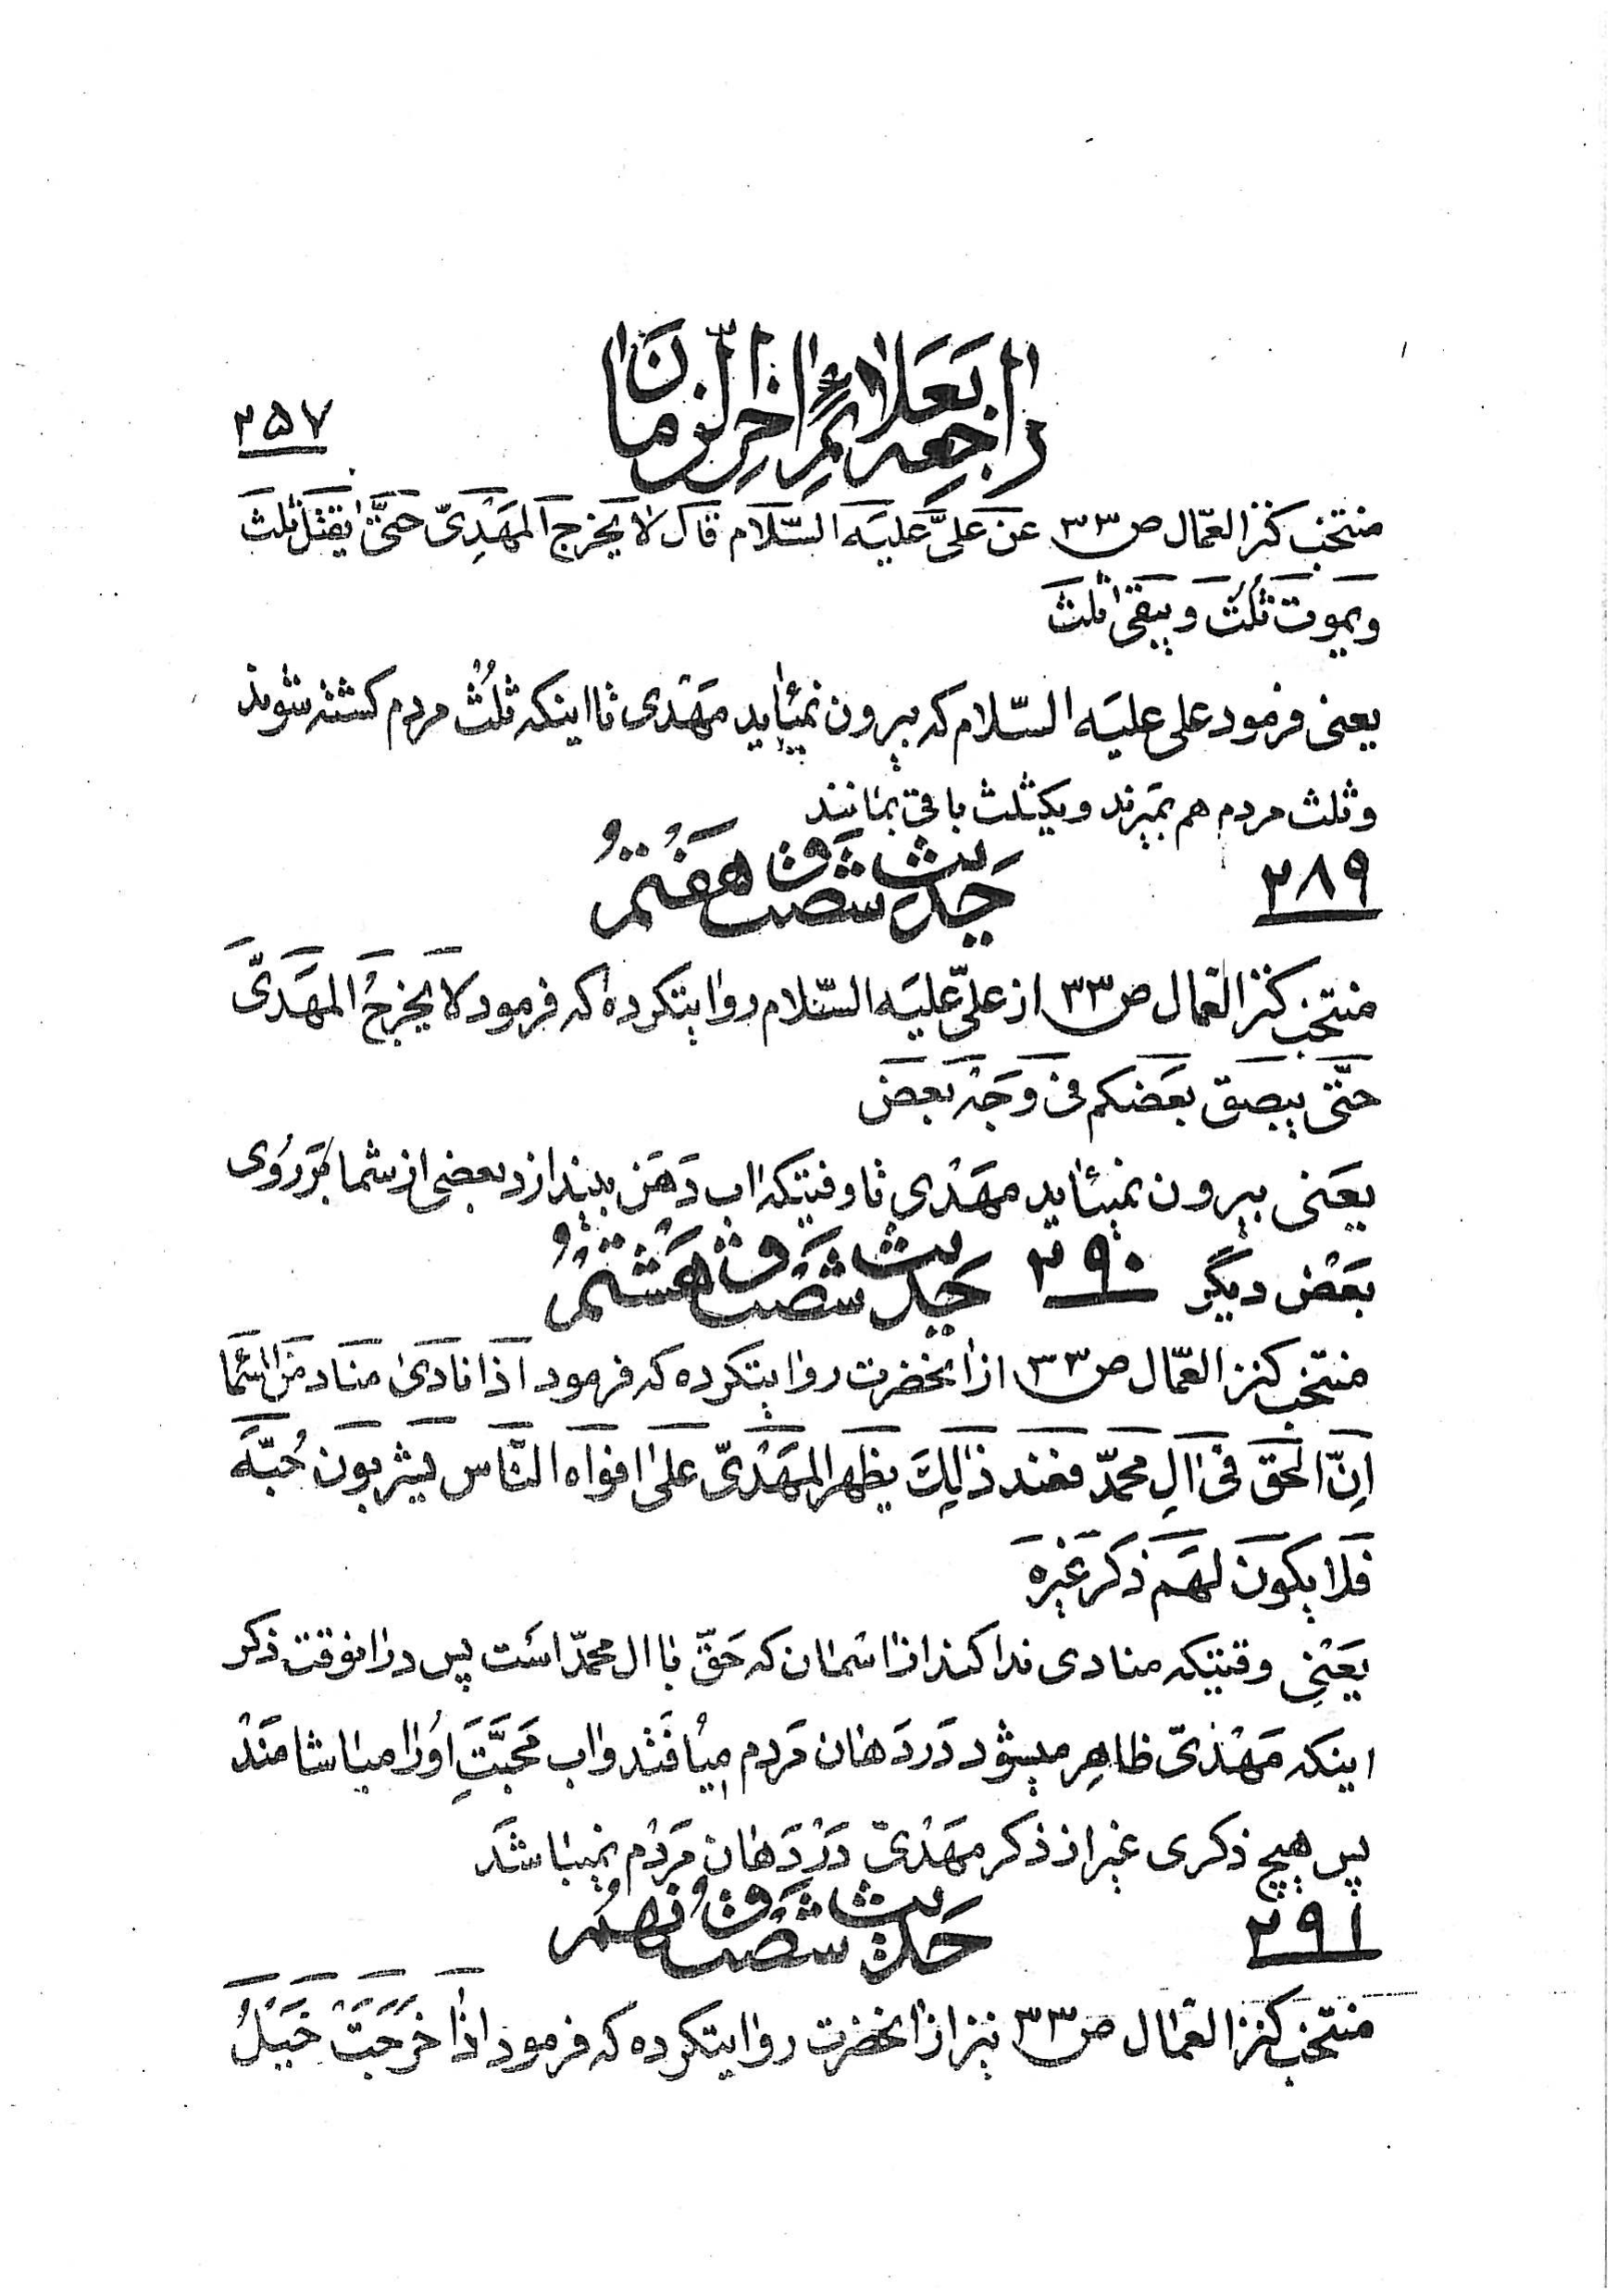 راجعه بعلائم اخر الزمان
۲۵۷
منتخب کنز العمّال ص۳۳ عن علیّ علیه السّلام قال لا یخرج المهدیّ حتّی یقتل ثلث
و یموت ثلث و یبقی ثلث
یعنی فرمود علی علیه السّلام که بیرون نمیٔاید مهدی تا اینکه ثلث مردم کشته شوند
و ثلث مردم هم بمیرند و یکثلث باقی بمانند
۲۸۹ حدیث شصت و هفتم
منتخب کنز العمال ص۳۳ از علیّ علیه السّلام روایتکرده که فرمود لا یخرج المهدیّ
حتّی یبصق بعضکم فی وجه بعض
یعنی بیرون نمیٔاید مهدی تا وقتیکه اب دهن بیندازد بعضی از شما بر روی
بعض دیگر ۲۹۰ حدیث شصت و هشتم
منتخب کنز العمّال ص۳۳ از انحضرت روایتکرده که فرمود اذا نادی مناد من السّماء
اِنّ الحق فی الِ محمّد فعند ذالِکَ یظهر المهدیّ علی افواه النّاس یشربون حُبّه
فلا یکون لهم ذکر غیره
یعنی وقتیکه منادی ندا کند از اسمان که حقّ با ال محمّد است پس در انوقت ذکر
اینکه مهدیّ ظاهر میشود در دهان مردم میافتد و اب محبّتِ او را میاشامند
پس هیچ ذکری غیر از ذکر مهدیّ در دهان مردم نمیباشد
۲۹۱ حدیث شصت و نهم
منتخب کنز العمال ص۳۳ نیز از انحضرت روایتکرده که فرمود اذا خرجت خیلُ